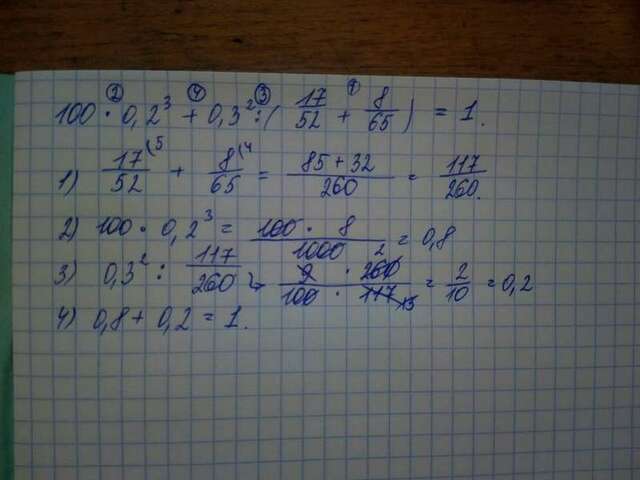 100 · 0,2³ + 0,3² : ( 17/52 + 8/65 ) = 1.
1) 17/52 (5 + 8/65 (4 = 85+32/260 = 117/260.
2) 100 · 0,2³ = 100 · 8/1000 = 0,8
3) 0,3² : 117/260 = 9 · 260 2/100 · 117 13 = 2/10 = 0,2
4) 0,8 + 0,2 = 1.